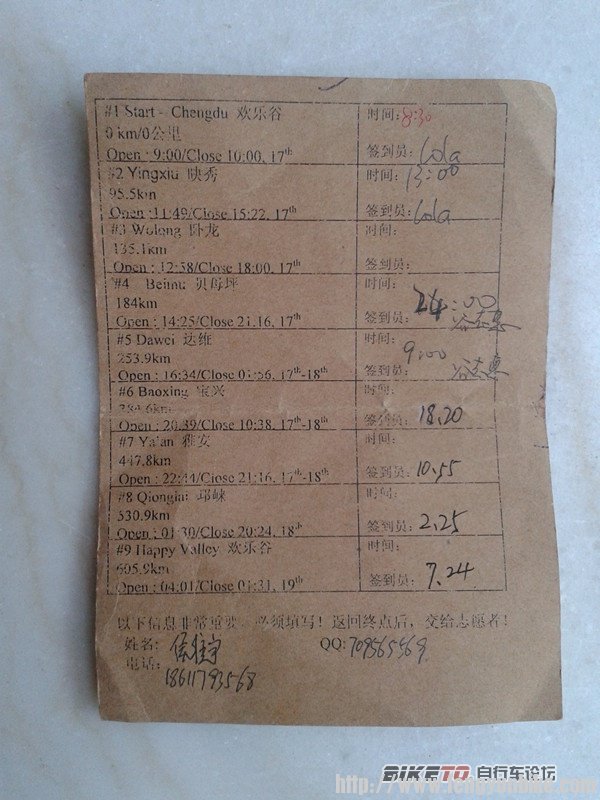 #1 Start - Chengdu 欢乐谷 时间: 8:30
0 km/0公里
Open : 9:00/Close 10:00, 17th 签到员: Lola
#2 Yingxiu 映秀 时间: 13:00
95.5km
Open : 11:49/Close 15:22, 17th 签到员: Lola
#3 Wolong 卧龙 时间:
135.1km
Open : 12:58/Close 18:00, 17th 签到员:
#4 Beimu 贝母坪 时间:
184km 24:00
Open : 14:25/Close 21.16, 17th 签到员:
#5 Dawei 达维 时间:
253.9km 9:00
Open : 16:34/Close 01:56, 17th-18th 签到员:
#6 Baoxing 宝兴 时间:
384.6km
Open : 20:39/Close 10:38, 17th-18th 签到员: 18.20
#7 Ya'an 雅安 时间:
447.8km
Open : 22:44/Close 21:16, 17th-18th 签到员: 10.55
#8 Qionglai 邛崃 时间:
530.9km
Open : 01:30/Close 20:24, 18th 签到员: 2.25
#9 Happy Valley 欢乐谷 时间:
605.9km
Open : 04:01/Close 01:31, 19th 签到员: 7.24
以下信息非常重要，必须填写！返回终点后，交给志愿者！
姓名: QQ: 709565569
电话: 18611793568
BIKETO 自行车论坛